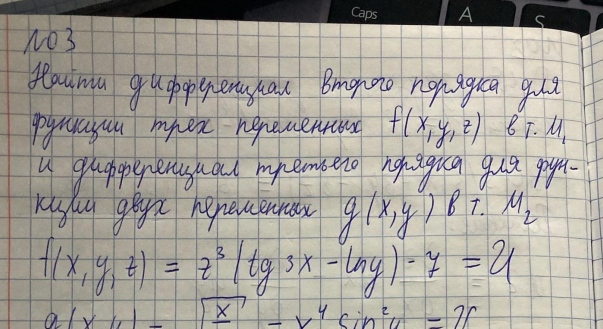 Caps
A
S
№3
Найти дифференциал второго порядка для
функции трех переменных f(x,y,z) в т. M₁
и дифференциал третьего порядка для фун-
кции двух переменных g(x,y) в т. M₂
f(x,y,z) = z³(tg 3x - lny) - 7 = U